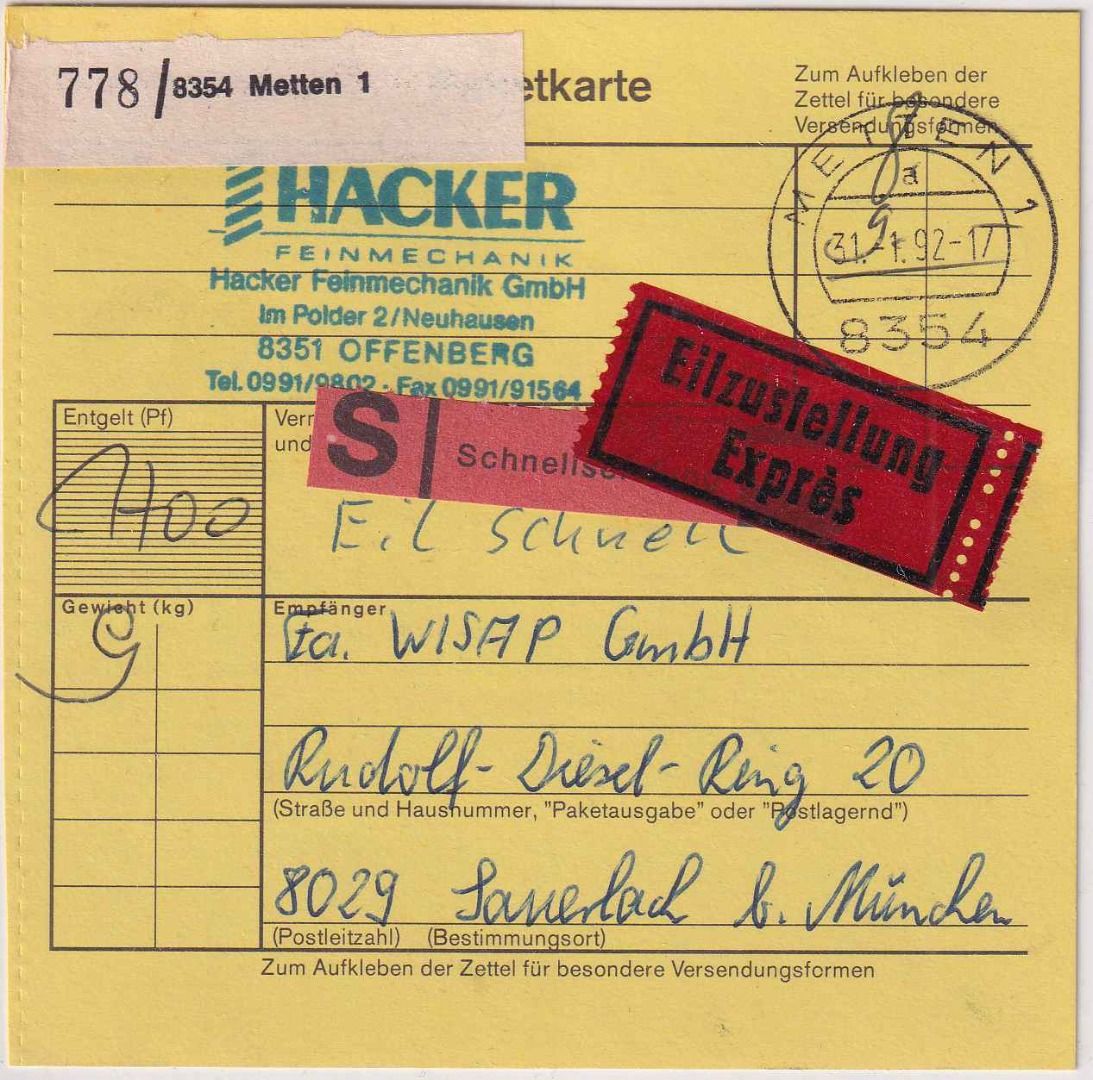 778/8354 Metten 1
etkarte
Zum Aufkleben der
Zettel für besondere
Versendungsformen
METTEN 1
a
31.-1.92-17
8354
HACKER
FEINMECHANIK
Hacker Feinmechanik GmbH
Im Polder 2/Neuhausen
8351 OFFENBERG
Tel. 0991/9802 · Fax 0991/91564
Eilzustellung
Exprès
Entgelt (Pf)
Verm
und
S
Schnells
Eil Schnell
Gewicht (kg)
9
Empfänger
Fa. WISAP GmbH
Rudolf-Diesel-Ring 20
(Straße und Hausnummer, "Paketausgabe" oder "Postlagernd")
8029 Sauerlach b. München
(Postleitzahl) (Bestimmungsort)
Zum Aufkleben der Zettel für besondere Versendungsformen